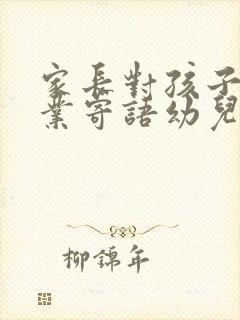 家長對孩子
業寄語幼兒
柳錦年